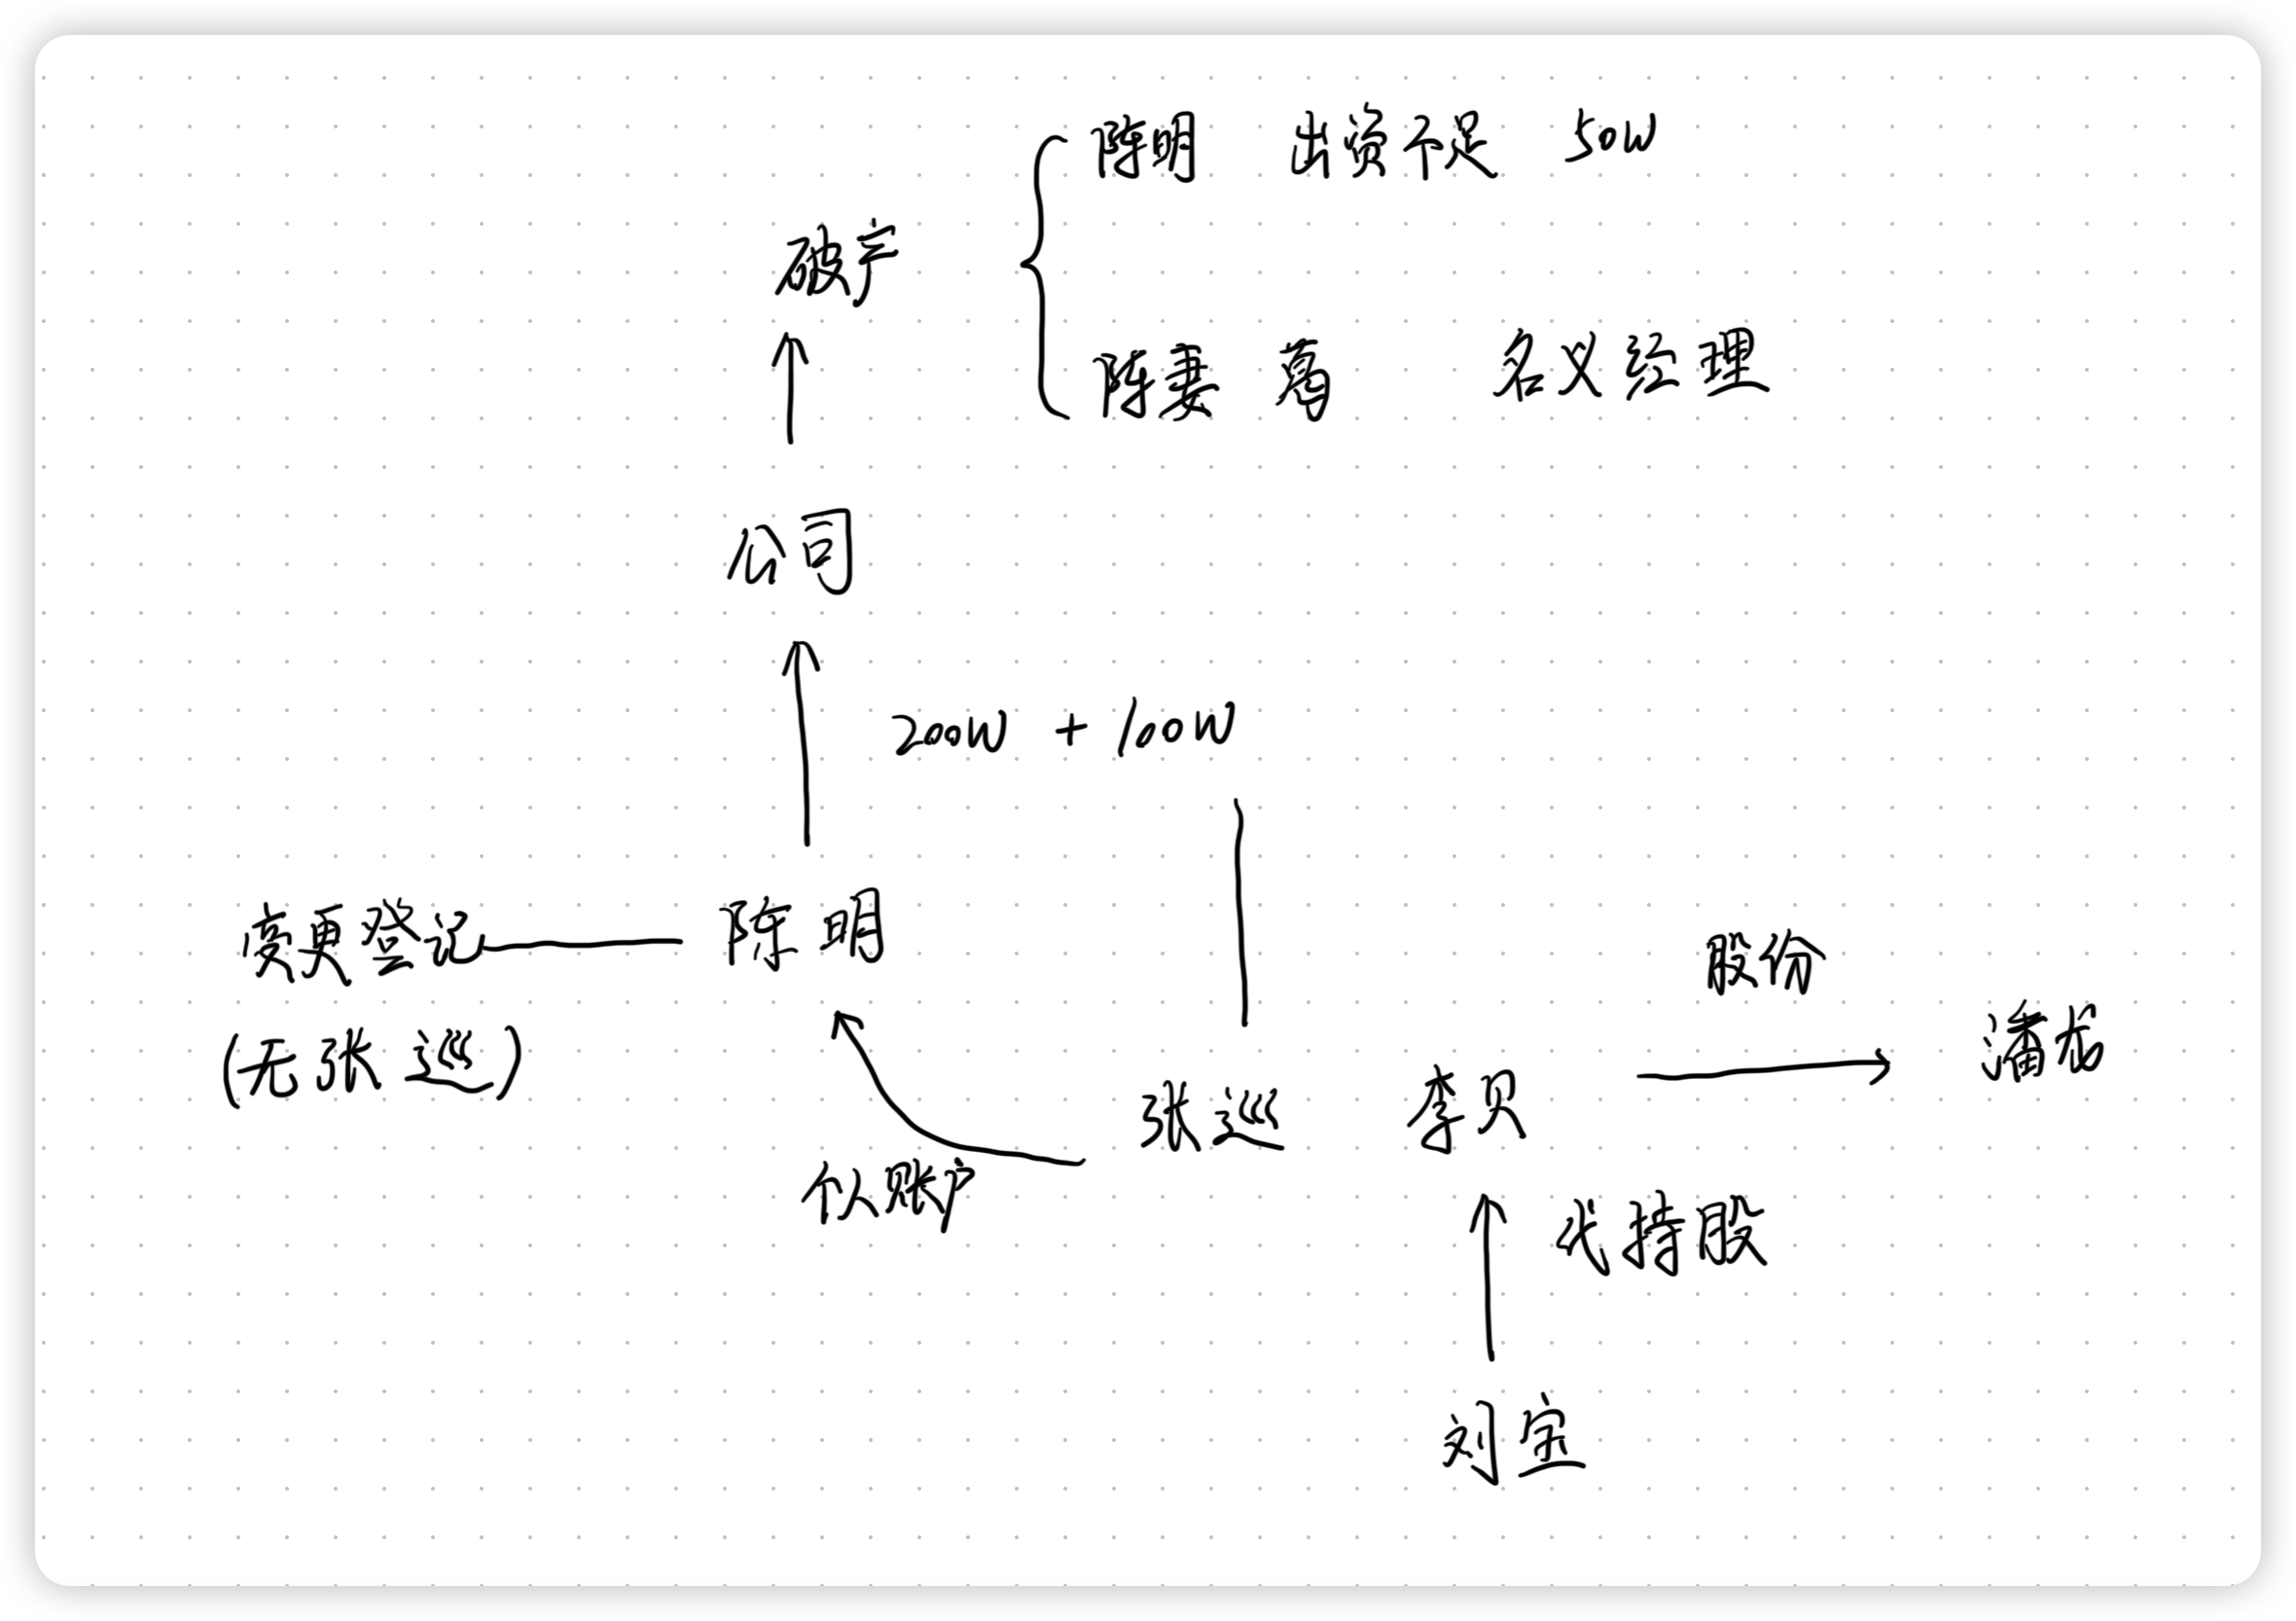 陈明 出资不足 50W
破产
陈妻 葛 名义经理
公司
200W + 100W
变更登记 陈明
股份
(无张巡)
潘龙
张巡 李贝
个人账户
代持股
刘宝